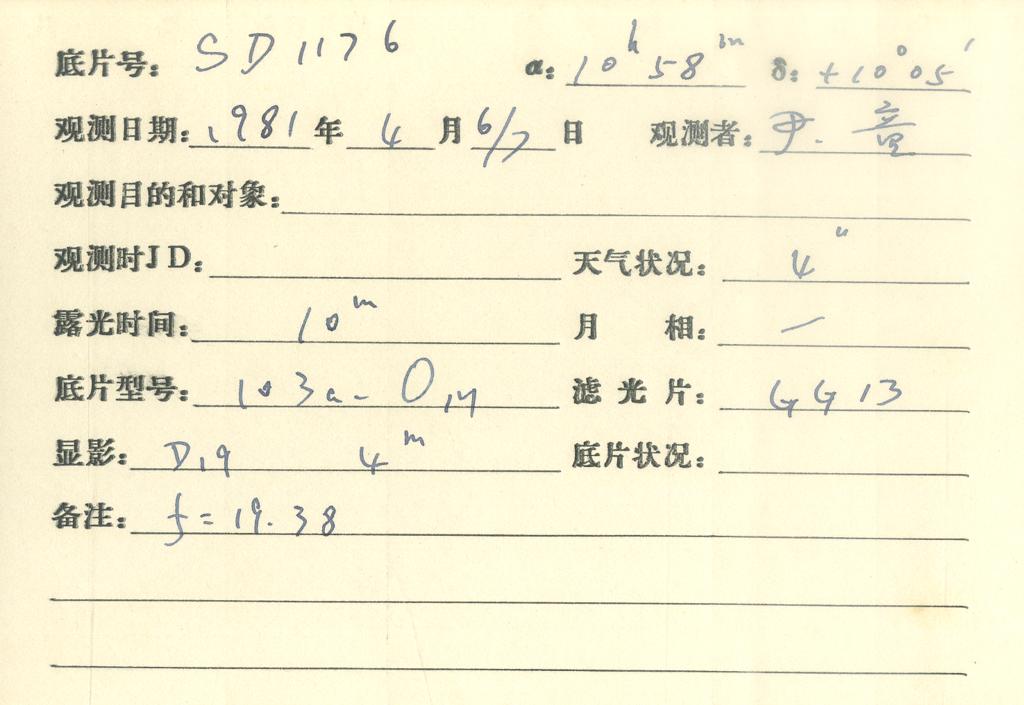 底片号: SD1176 α: 10ʰ58ᵐ δ: +10°05′
观测日期: 1981年4月6/7日 观测者: 尹.
观测目的和对象:
观测时JD: 天气状况: 4″
露光时间: 10ᵐ 月 相: —
底片型号: 103a-O 滤光片: GG13
显影: D19 4ᵐ 底片状况:
备注: f=19.38